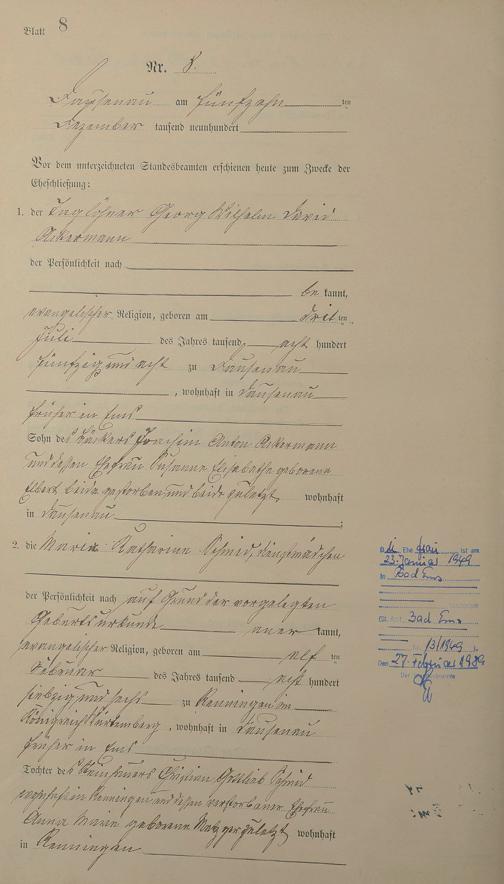 Blatt 8
Nr. 8.
Dausenau am fünfzehn ten
Dezember tausend neunhundert
Vor dem unterzeichneten Standesbeamten erschienen heute zum Zwecke der
Eheschließung:
1. der Taglöhner Georg Wilhelm David
Ackermann
der Persönlichkeit nach
be kannt,
evangelischer Religion, geboren am drit ten
Juli des Jahres tausend acht hundert
fünfzig und acht zu Dausenau
, wohnhaft in Dausenau
früher in Ems
Sohn des Bäckers Joachim Anton Ackermann
und dessen Ehefrau Susanne Elisabetha geborene
Elbert, beide gestorben und beide zuletzt wohnhaft
in Dausenau
2. die Marie Katharina Schmid, Dienstmädchen
der Persönlichkeit nach auf Grund der vorgelegten
Geburtsurkunde aner kannt,
evangelischer Religion, geboren am elf ten
Februar des Jahres tausend acht hundert
siebzig und sechs zu Renningen im
Königreich Württemberg, wohnhaft in Dausenau
früher in Ems
Tochter des Steinhauers Christian Gottlieb Schmid
wohnhaft in Renningen und dessen verstorbener Ehefrau
Anna Marie geborene Metzger zuletzt wohnhaft
in Renningen
Die Ehefrau ist am
23. Januar 1949
in Bad Ems
Bad Ems
Nr. 13/1949
Den 27. Februar 19